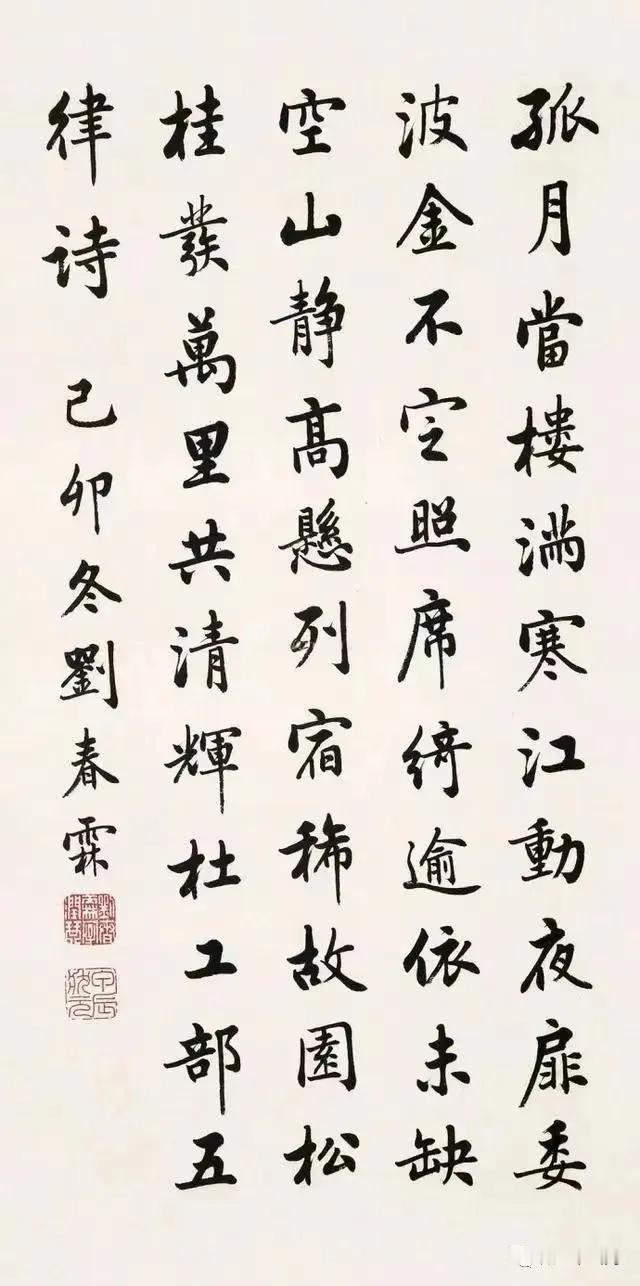 孤月當樓滿寒江動夜扉委
波金不定照席綺逾依未缺
空山静高懸列宿稀故園松
桂發萬里共清輝杜工部五
律詩 己卯冬劉春霖